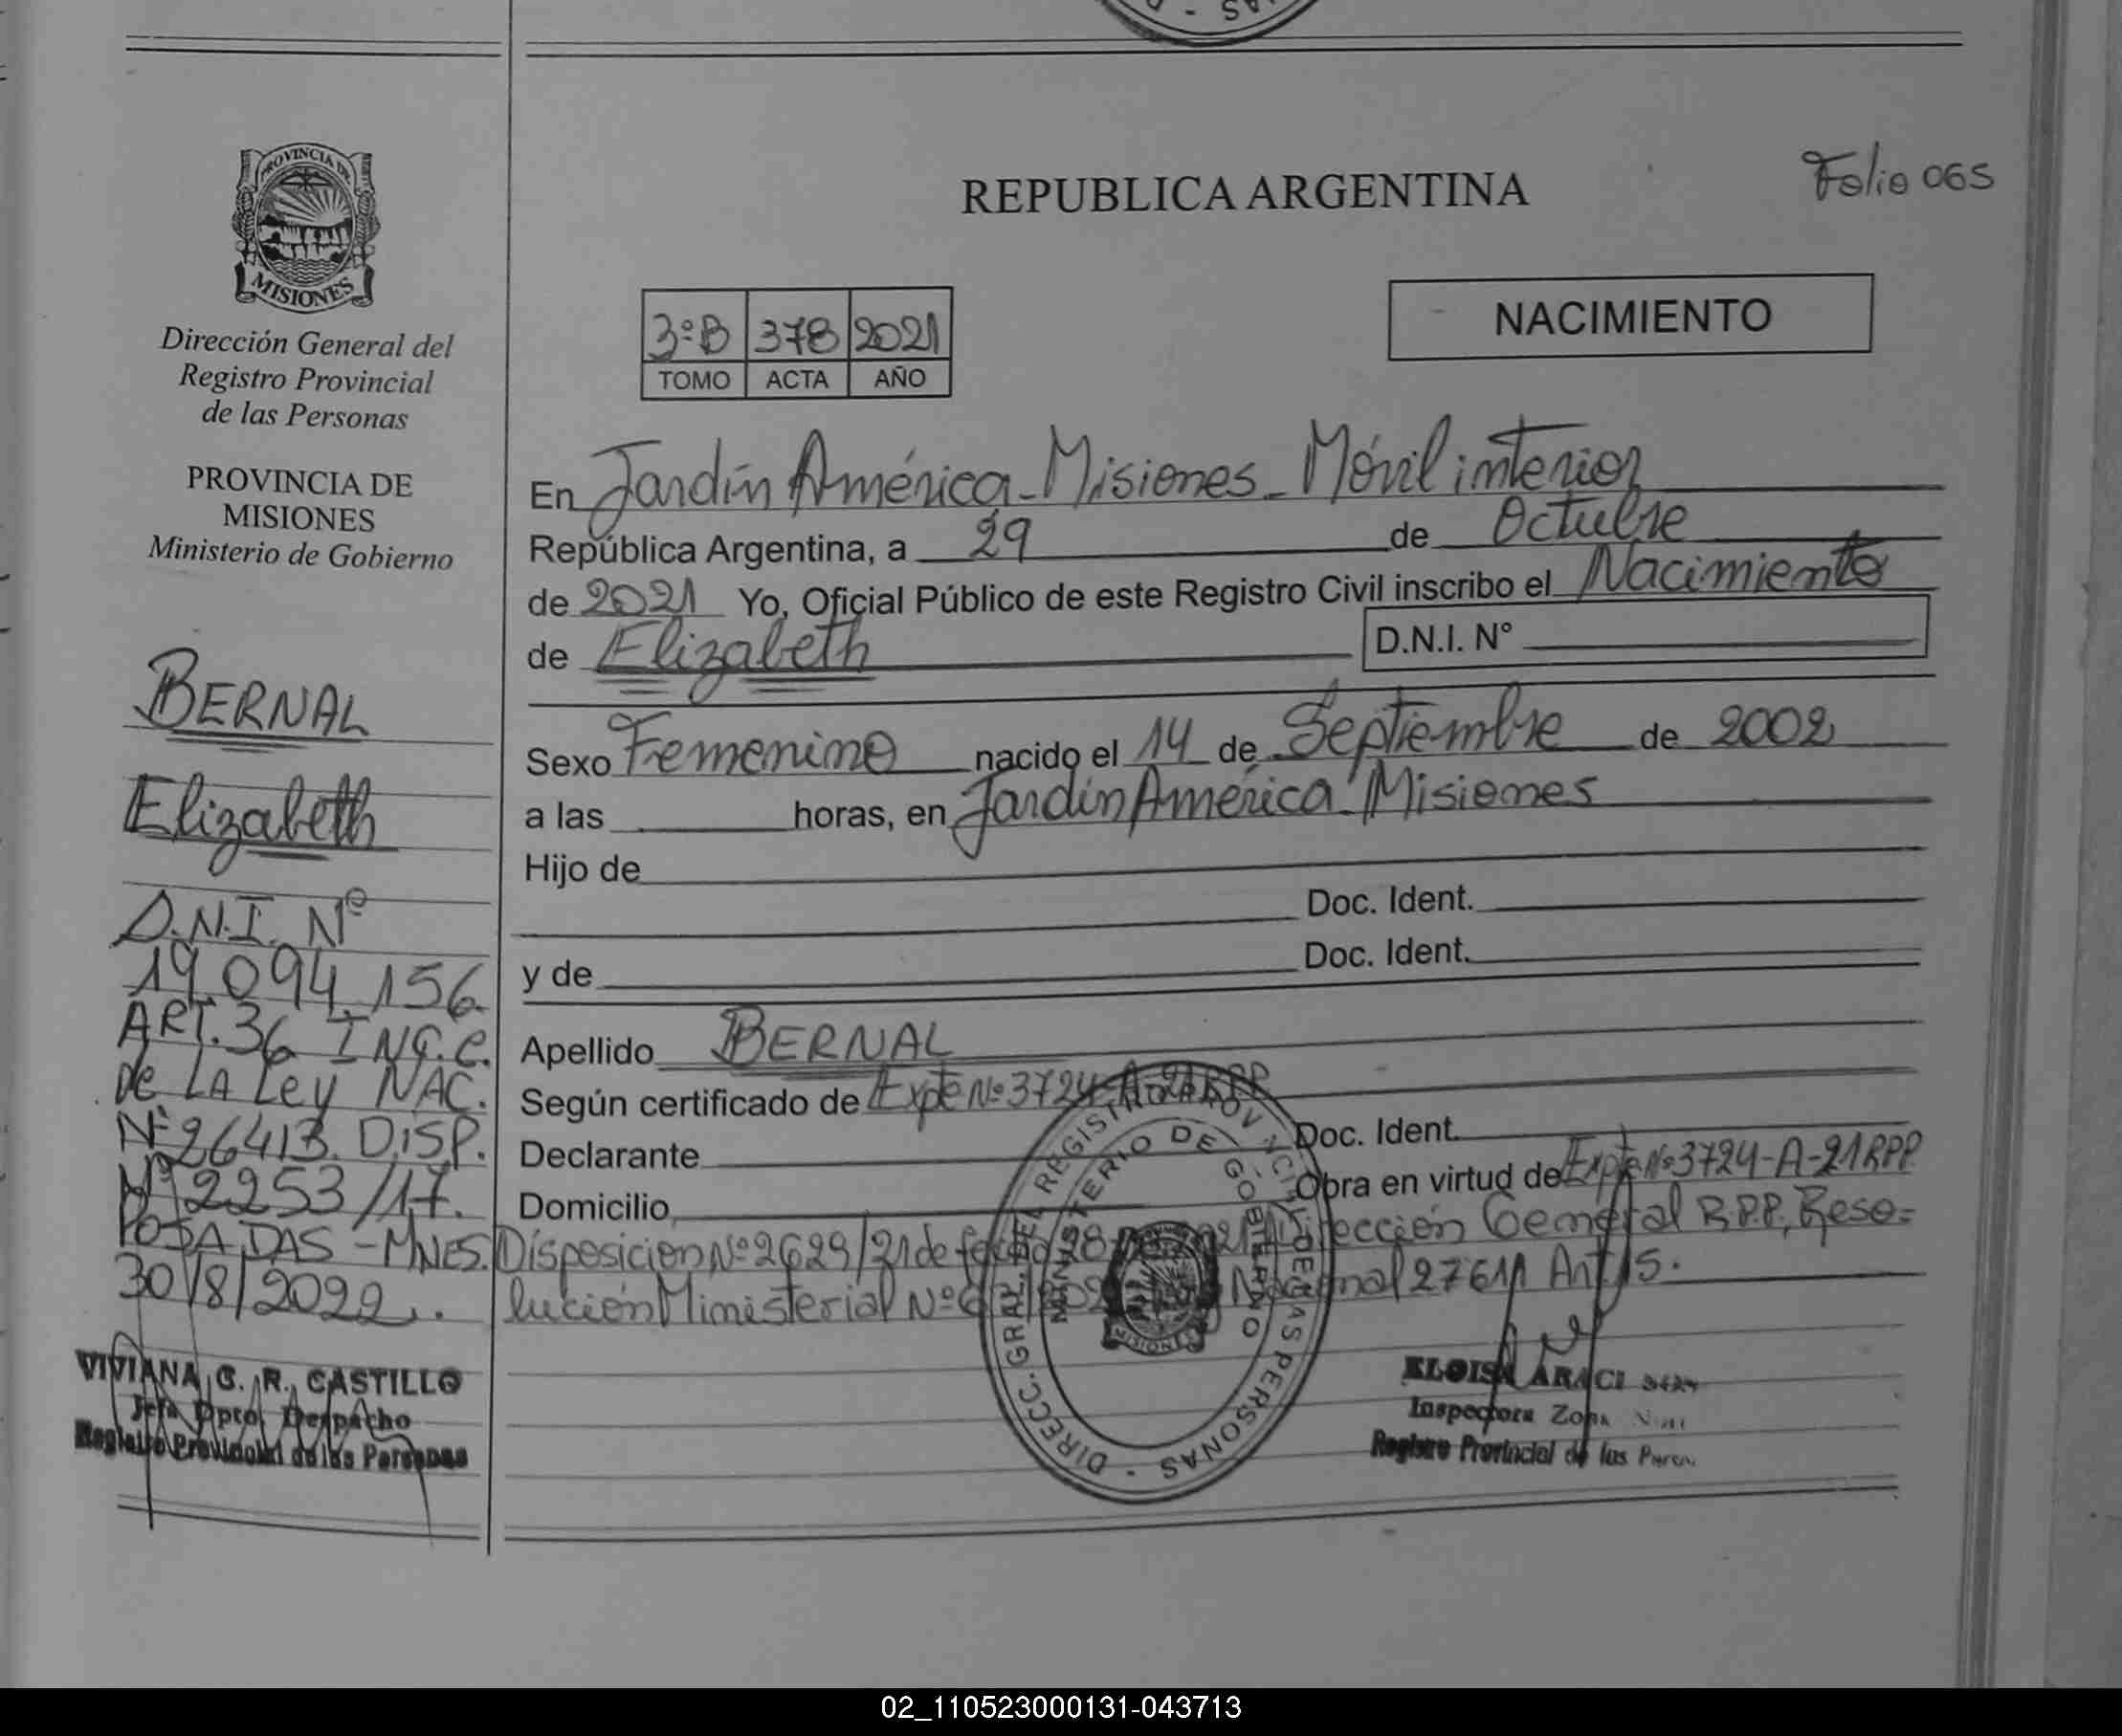 AS -
REPUBLICA ARGENTINA
Folio 065
PROVINCIA DE
MISIONES
Dirección General del
Registro Provincial
de las Personas
PROVINCIA DE
MISIONES
Ministerio de Gobierno
3ºB 378 2021
TOMO ACTA AÑO
NACIMIENTO
En Jardín América - Misiones - Móvil interior
República Argentina, a 29 de Octubre
de 2021 Yo, Oficial Público de este Registro Civil inscribo el Nacimiento
de Elizabeth D.N.I. N°
Sexo Femenino nacido el 14 de Septiembre de 2002
a las horas, en Jardín América - Misiones
Hijo de
Doc. Ident.
y de Doc. Ident.
Apellido BERNAL
Según certificado de Expte Nº 3724-A-21RPP
Declarante Doc. Ident.
Domicilio Obra en virtud de Expte Nº 3724-A-21RPP
Disposición Nº 2629/21 de fecha 28 Dirección General R.P.P, Reso=
lución Ministerial Nº 27611 Art. 5.
BERNAL
Elizabeth
D.N.I. Nº
19.094.156
ART. 36 INC. C.
De LA Ley NAC.
Nº 26413. DISP.
Nº 2253/17.
POSADAS - MNES.
30/8/2022.
VIVIANA G. R. CASTILLO
Jefa Dpto. Despacho
Registro Provincial de las Personas
DIRECC. GRAL. DEL REGISTRO PROVINCIAL DE LAS PERSONAS -
MINISTERIO DE GOBIERNO
MISIONES
ELOISA ARACI
Inspectora Zona
Registro Provincial de las
02_110523000131-043713